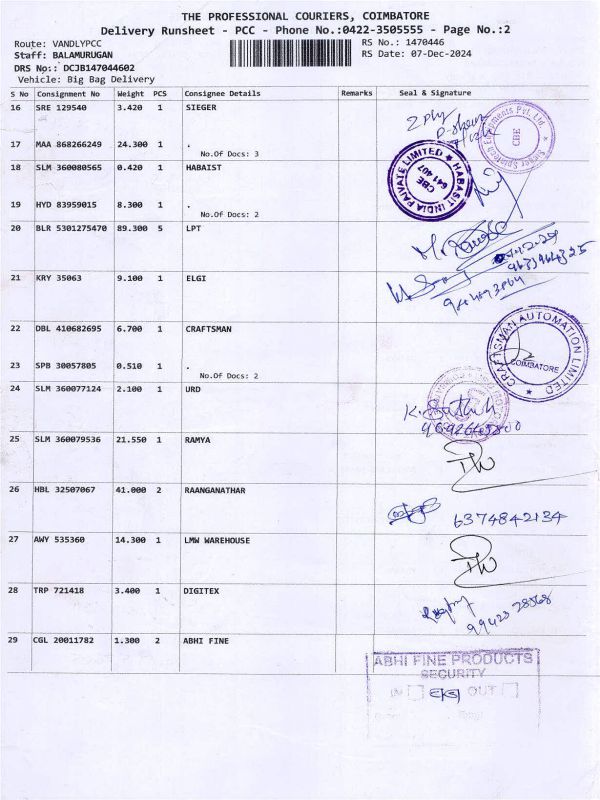 THE PROFESSIONAL COURIERS, COIMBATORE
Delivery Runsheet - PCC - Phone No.:0422-3505555 - Page No.:2
Route: VANDLYPCC
RS No.: 1470446
Staff: BALAMURUGAN
RS Date: 07-Dec-2024
DRS No.: DCJB147044602
Vehicle: Big Bag Delivery
S No Consignment No Weight PCS Consignee Details Remarks Seal & Signature
16 SRE 129540 3.420 1 SIEGER
2 ply
17 MAA 868266249 24.300 1 .
No.Of Docs: 3
18 SLM 360080565 0.420 1 HABAIST
HABASIT INDIA PAIVATE LIMITED ★
CBE
641 407
19 HYD 83959015 8.300 1 .
No.Of Docs: 2
20 BLR 5301275470 89.300 5 LPT
21 KRY 35063 9.100 1 ELGI
22 DBL 410682695 6.700 1 CRAFTSMAN
CRAFTSMAN AUTOMATION LIMITED ★
COIMBATORE
23 SPB 30057805 0.510 1 .
No.Of Docs: 2
24 SLM 360077124 2.100 1 URD
25 SLM 360079536 21.550 1 RAMYA
26 HBL 32507067 41.000 2 RAANGANATHAR
6374842134
27 AWY 535360 14.300 1 LMW WAREHOUSE
28 TRP 721418 3.400 1 DIGITEX
29 CGL 20011782 1.300 2 ABHI FINE
ABHI FINE PRODUCTS
SECURITY
IN OUT